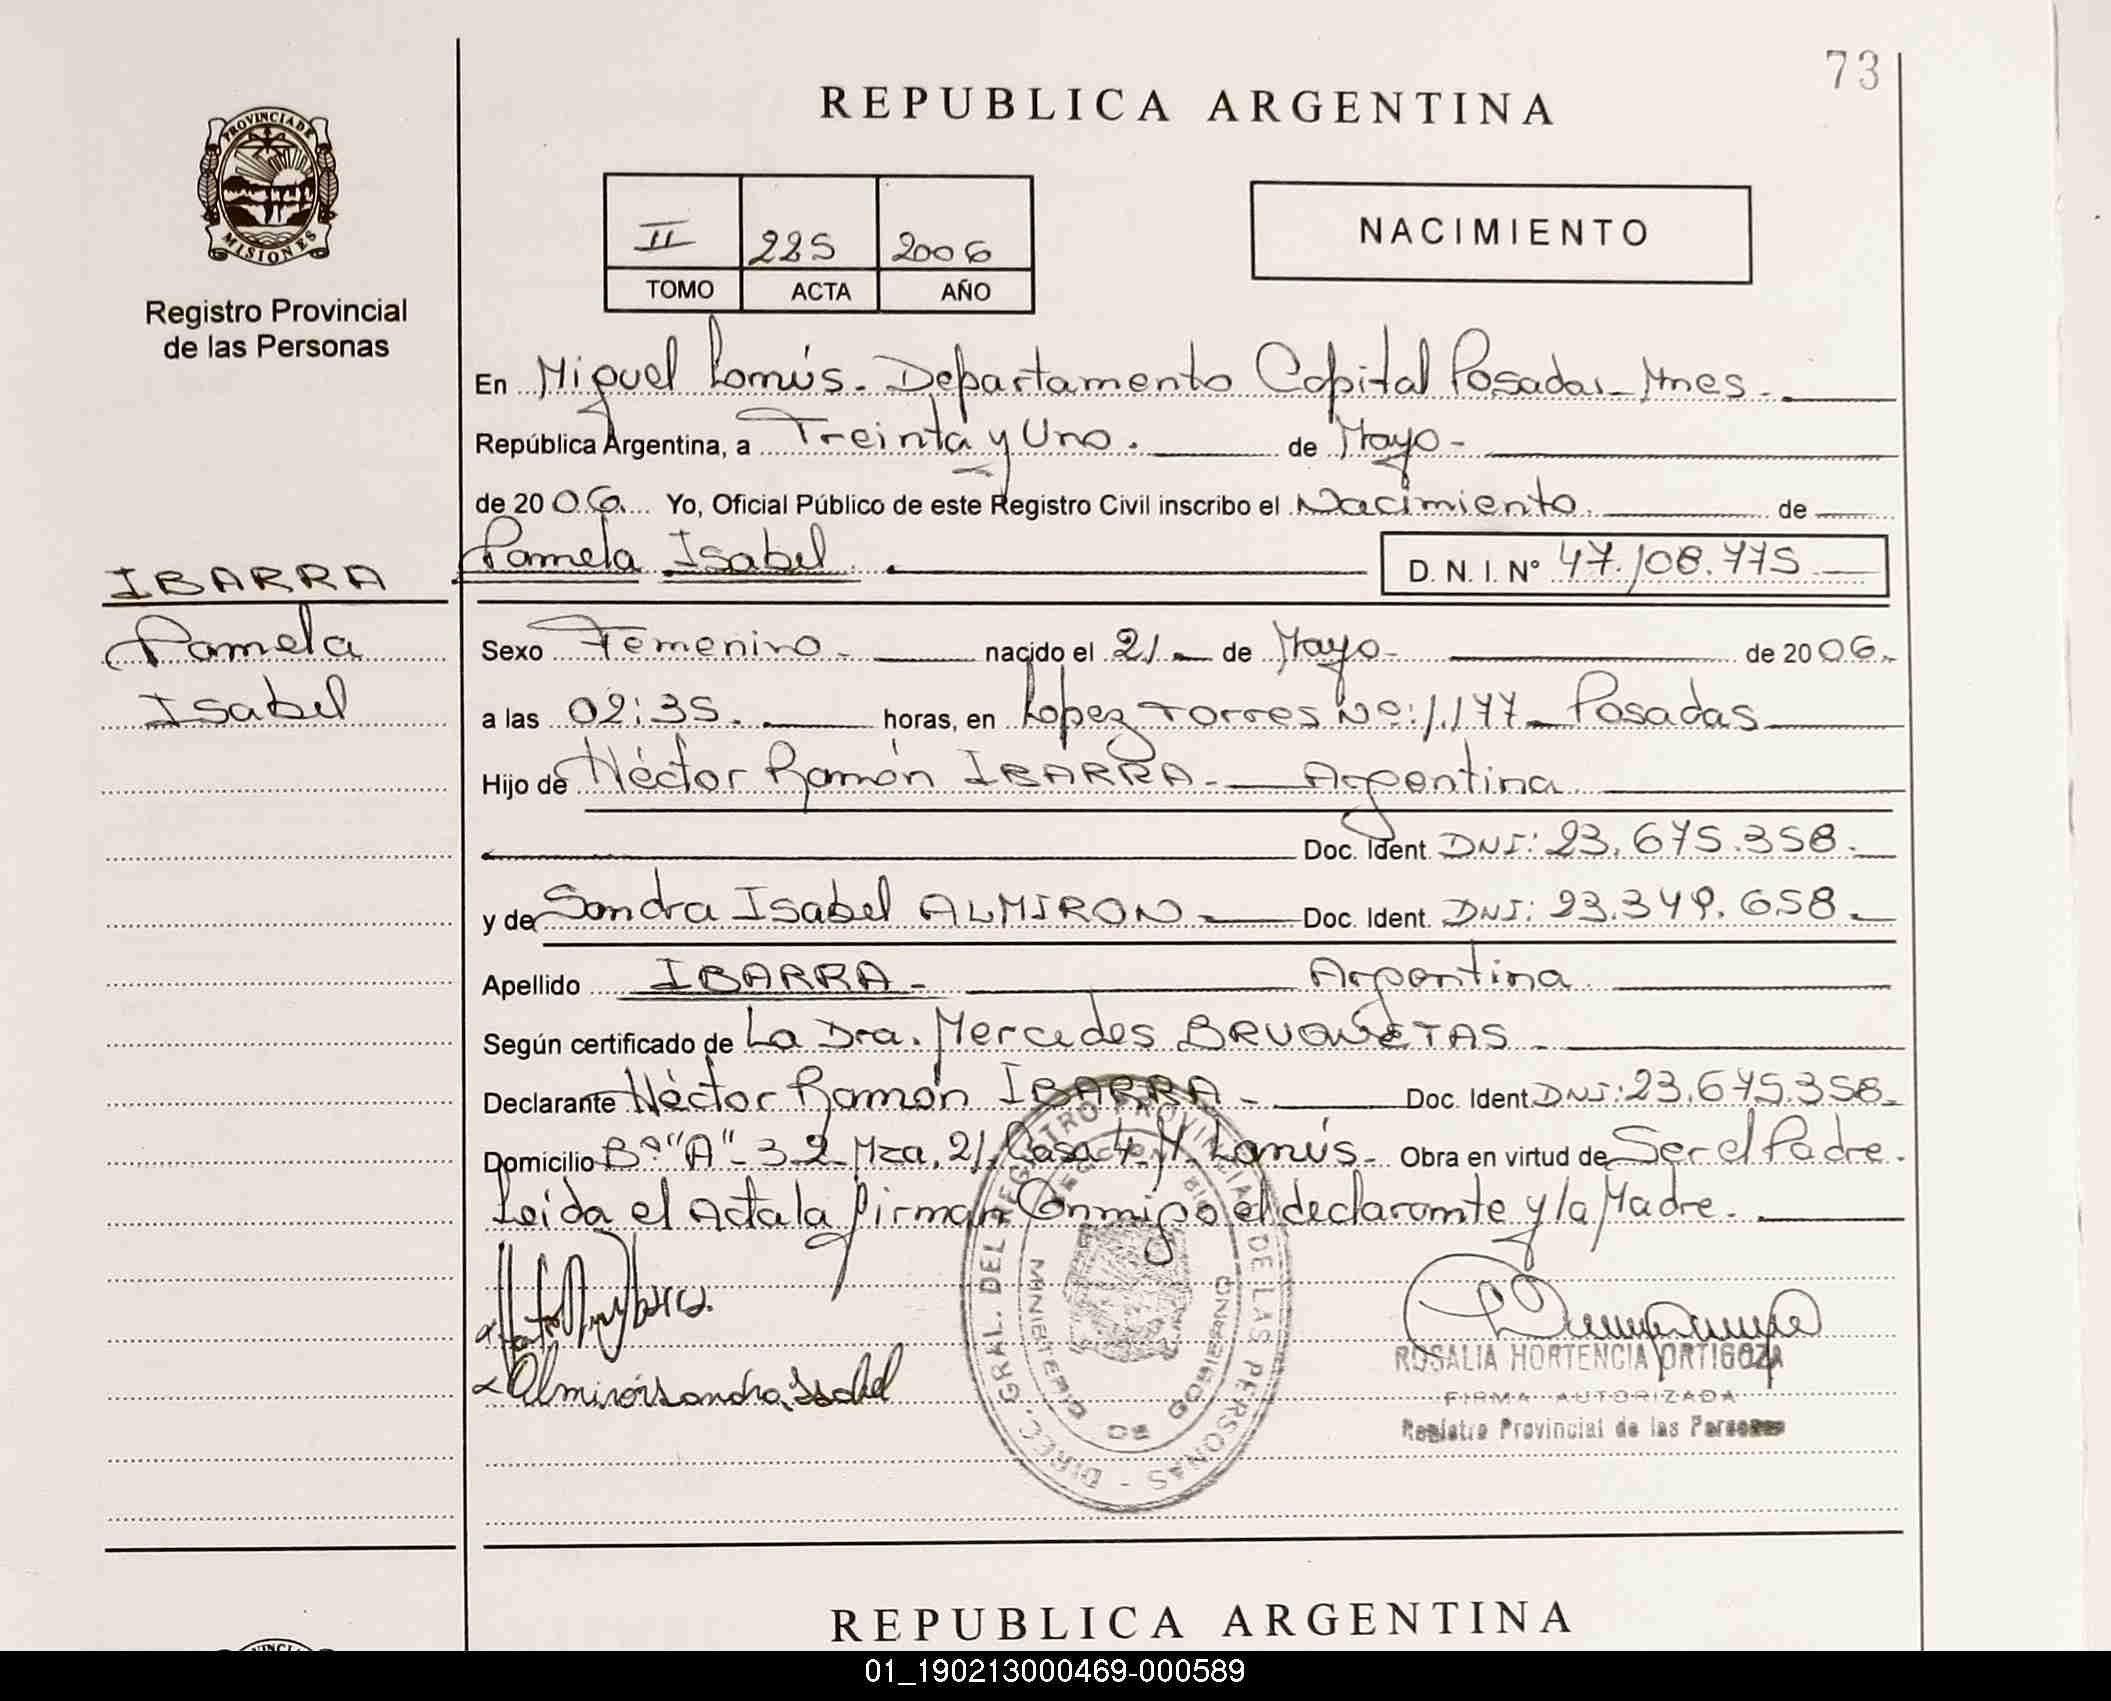 73
REPUBLICA ARGENTINA
PROVINCIA DE
MISIONES
Registro Provincial
de las Personas
II 225 2006
TOMO ACTA AÑO
NACIMIENTO
En Miguel Lanús. Departamento Capital Posadas - Mnes.
República Argentina, a Treinta y Uno. de Mayo -
de 2006. Yo, Oficial Público de este Registro Civil inscribo el Nacimiento. de
Pamela Isabel. D. N. I. Nº 47.108.775
IBARRA
Pamela
Isabel
Sexo Femenino - nacido el 21 de Mayo - de 2006.
a las 02:35. horas, en Lopez Torres Nº: 1.177 - Posadas
Hijo de Héctor Ramón IBARRA - Argentina
Doc. Ident. DNI: 23.675.358.
y de Sandra Isabel ALMIRON Doc. Ident. DNI: 23.349.658.
Apellido IBARRA - Argentina
Según certificado de La Dra. Mercedes BRUQUETAS
Declarante Héctor Ramón IBARRA - Doc. Ident DNI: 23.675.358.
Domicilio Bº "A" - 3-2 - Mza. 21. Casa 4. M. Lanús. Obra en virtud de Ser el Padre.
Leída el Acta la firman Conmigo el declarante y la Madre.
Almirón Sandra Isabel
DIREC. GRAL. DEL REGISTRO PROVINCIAL DE LAS PERSONAS
MINISTERIO DE GOBIERNO
ROSALIA HORTENCIA ORTIGOZA
FIRMA AUTORIZADA
Registro Provincial de las Personas
REPUBLICA ARGENTINA
01_190213000469-000589